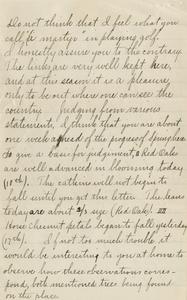 Do not think that I feel what you
call a martyr in playing golf.
I honestly assure you to the contrary.
The links are very well kept here,
and at this season it is a pleasure
only to be out where one can see the
country. Judging from various
statements, I think that you are about
one week ahead of the progress of
to give a basis for judgement, a Red Oak
are well advanced in blooming today
(10th). The catkins will not begin to
fall until you get this letter. The leaves
today are about 2/3 size (Red Oak).
Horse Chesnut petals began to fall yesterday
(17th). If not too much trouble, it
would be interesting to you at home to
observe how these observations corres-
pond, both mentioned trees being found
on the place.